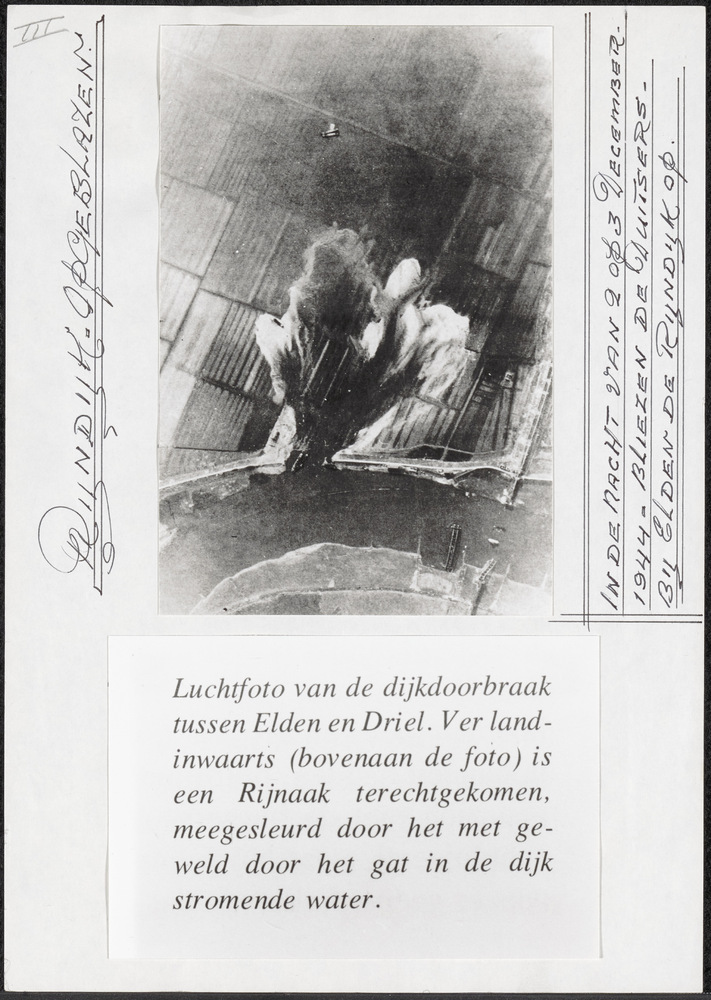 III
RIJNDIJK - OPGEBLAZEN.
IN DE NACHT VAN 2 OP 3 DECEMBER.
1944 - BLIEZEN DE DUITSERS -
BIJ ELDEN DE RIJNDIJK OP.
Luchtfoto van de dijkdoorbraak
tussen Elden en Driel. Ver land-
inwaarts (bovenaan de foto) is
een Rijnaak terechtgekomen,
meegesleurd door het met ge-
weld door het gat in de dijk
stromende water.